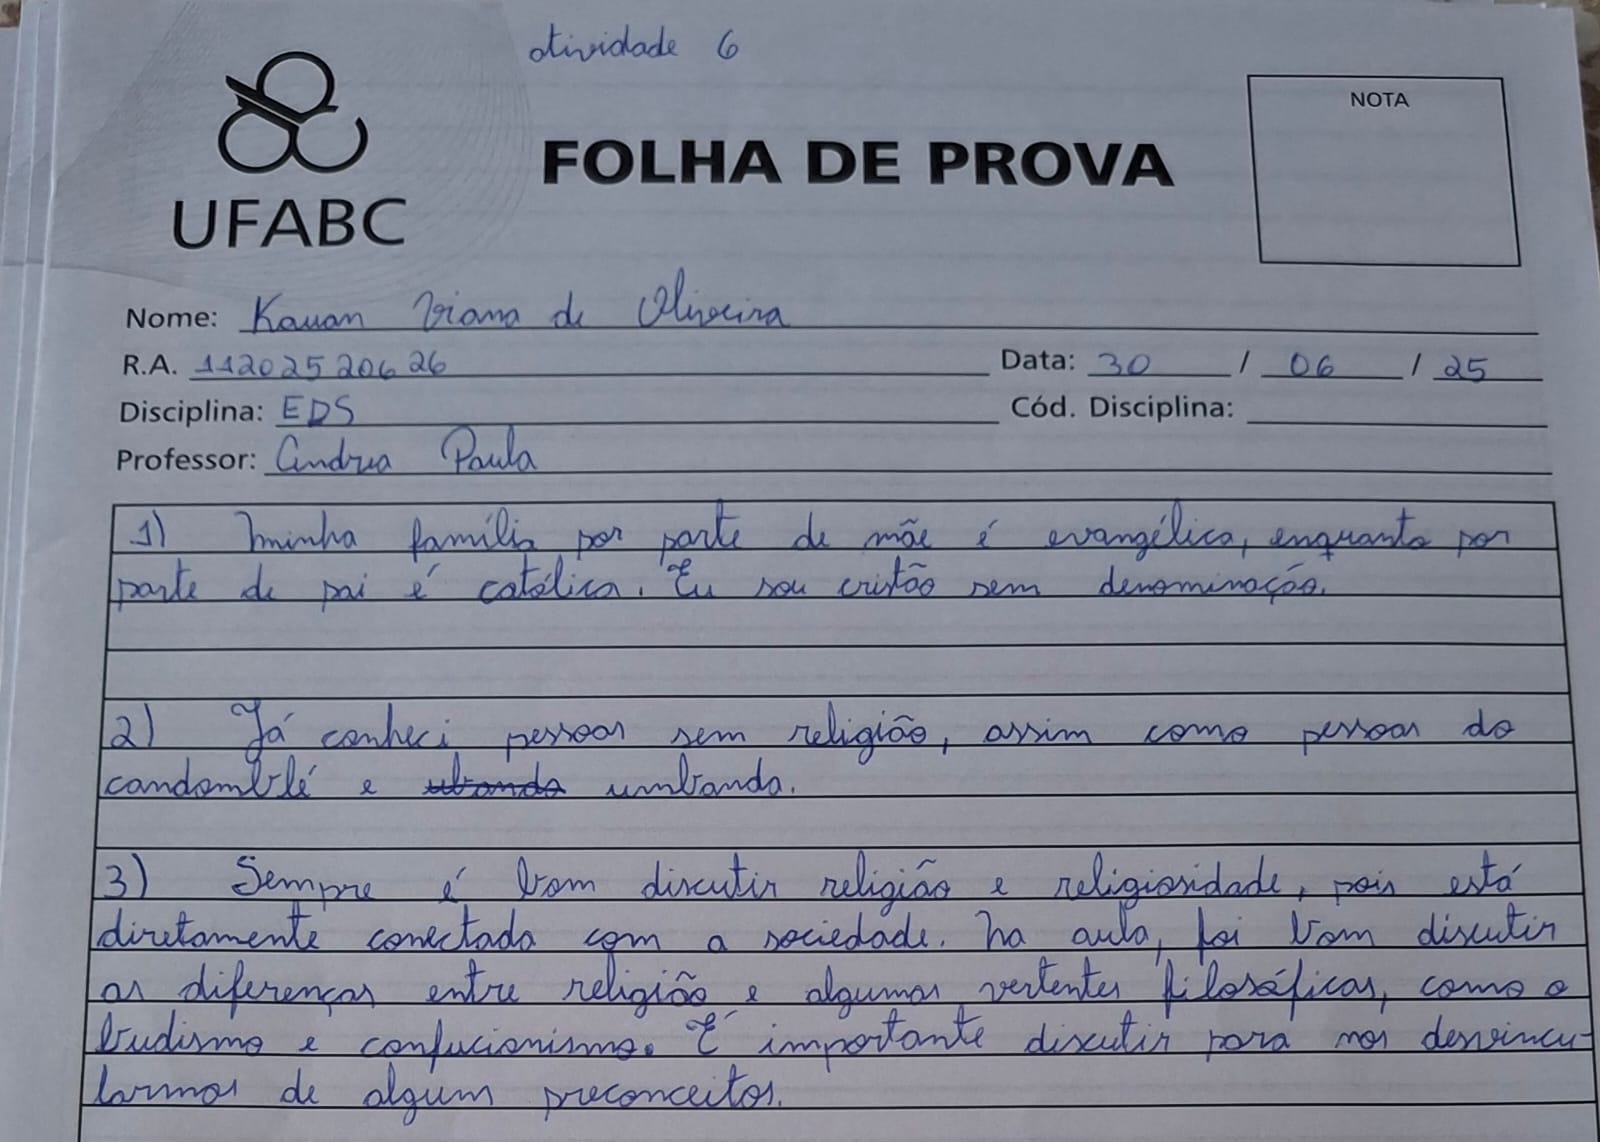 atividade 6
NOTA
FOLHA DE PROVA
UFABC
Nome: Kauan Viana de Oliveira
R.A. 11202520626 Data: 30 / 06 / 25
Disciplina: EDS Cód. Disciplina:
Professor: Andrea Paula
1) minha família por parte de mãe é evangélica, enquanto por
parte de pai é católica. Eu sou cristão sem denominação.
2) Já conheci pessoas sem religião, assim como pessoas do
candomblé e ubanda umbanda.
3) Sempre é bom discutir religião e religiosidade, pois está
diretamente conectada com a sociedade. Na aula, foi bom discutir
as diferenças entre religião e algumas vertentes filosóficas, como o
budismo e confucionismo. É importante discutir para nos desvincu-
larmos de algum preconceitos.